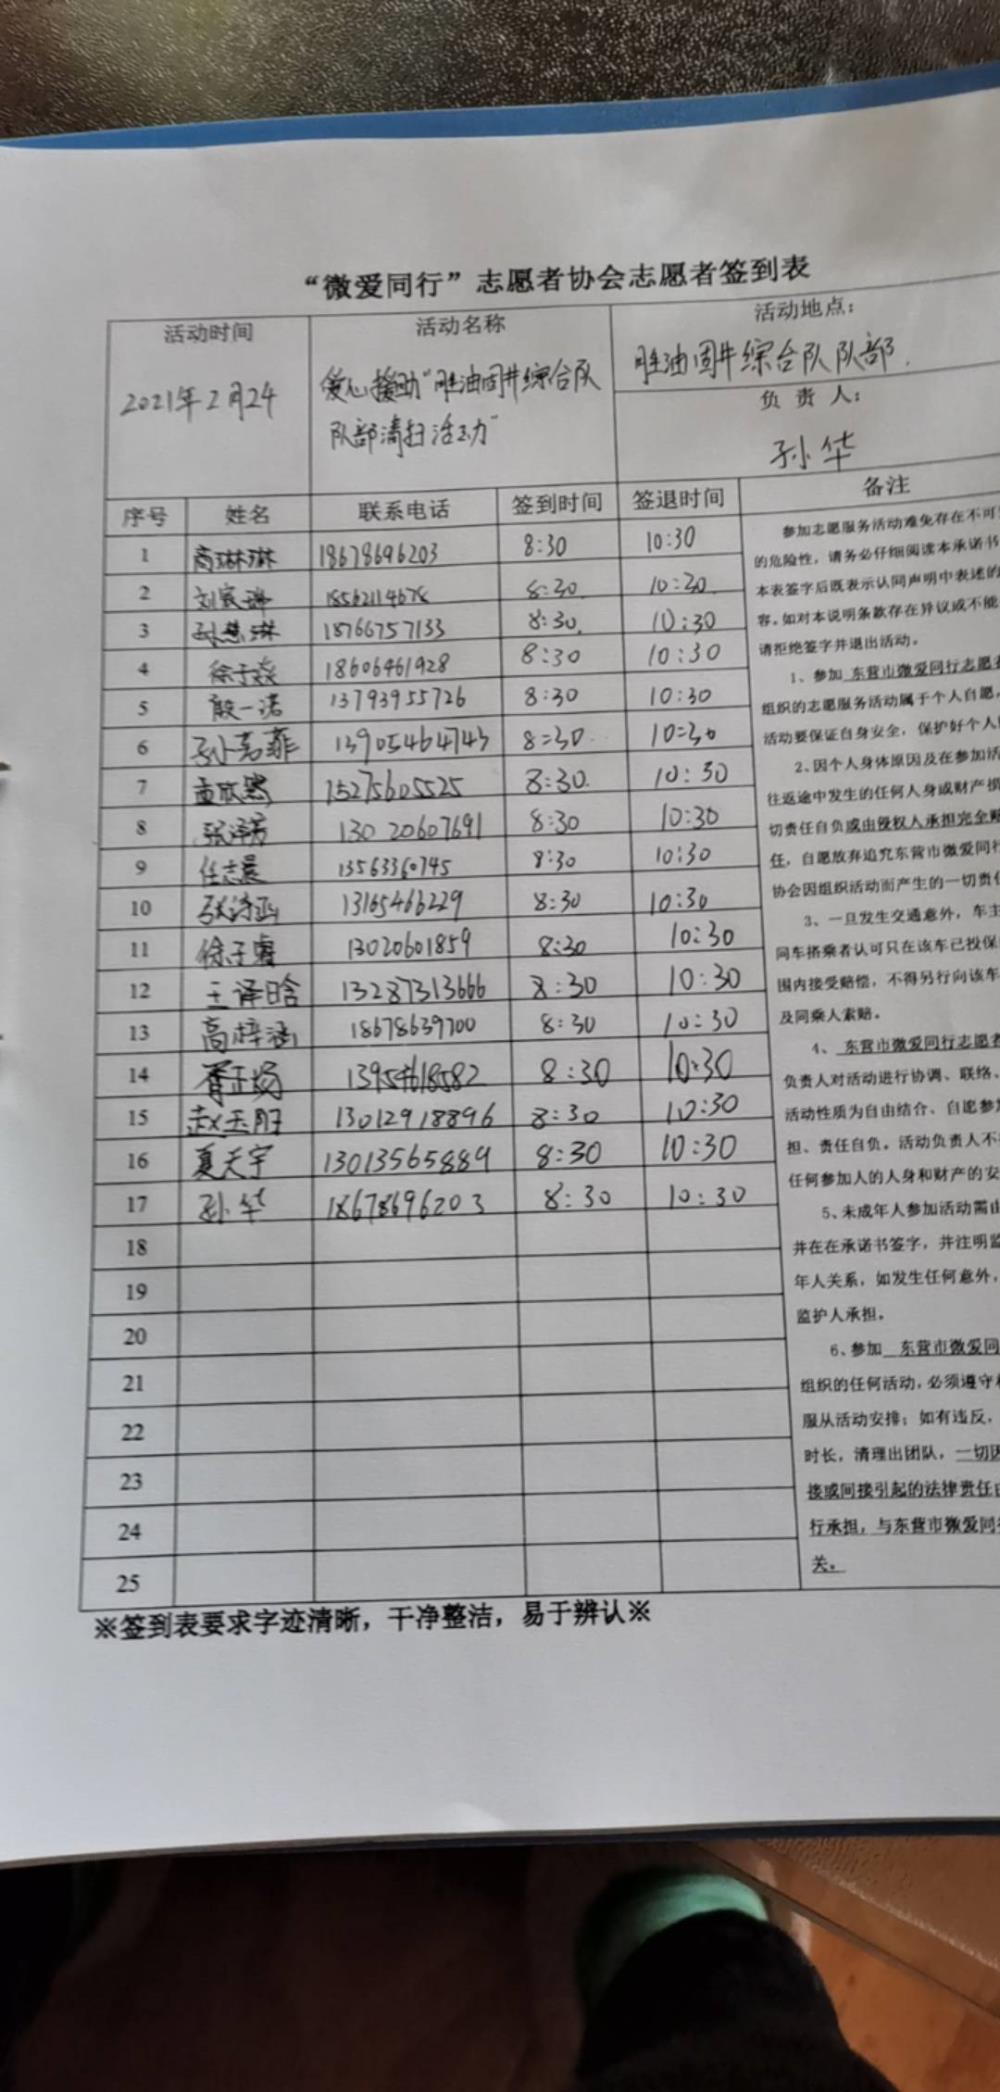 “微爱同行”志愿者协会志愿者签到表
活动时间 活动名称 活动地点：
2021年2月24 爱心援助“胜油固井综合队 胜油固井综合队队部.
队部清扫活动” 负 责 人：
孙华
序号 姓名 联系电话 签到时间 签退时间 备注
1 商琳琳 18678696203 8:30 10:30
2 18562114678 8:30 10:30
3 孙慧琳 18766757133 8:30 10:30
4 徐子焱 18606461928 8:30 10:30
5 殷一诺 13793955726 8:30 10:30
6 13905464743 8:30 10:30
7 孟欣 15275605525 8:30 10:30
8 13020607691 8:30 10:30
9 任志晨 13563360745 8:30 10:30
10 张诗函 13165466229 8:30 10:30
11 徐子睿 13020601859 8:30 10:30
12 王译晗 13287313666 8:30 10:30
13 高梓涵 18678639700 8:30 10:30
14 胥正扬 13954618582 8:30 10:30
15 赵玉 13012918896 8:30 10:30
16 夏天宇 13013565889 8:30 10:30
17 孙华 18678696203 8:30 10:30
18
19
20
21
22
23
24
25
参加志愿服务活动难免存在不可
的危险性，请务必仔细阅读本承诺书
本表签字后既表示认同声明中表述的
容。如对本说明条款存在异议或不能
请拒绝签字并退出活动。
1、参加 东营市微爱同行志愿
组织的志愿服务活动属于个人自愿，
活动要保证自身安全，保护好个人
2、因个人身体原因及在参加活
往返途中发生的任何人身或财产损
切责任自负或由侵权人承担完全赔
任，自愿放弃追究东营市微爱同行
协会因组织活动而产生的一切责任
3、一旦发生交通意外，车主
同车搭乘者认可只在该车已投保
围内接受赔偿，不得另行向该车
及同乘人索赔。
4、 东营市微爱同行志愿
负责人对活动进行协调、联络、
活动性质为自由结合、自愿参
担、责任自负。活动负责人不
任何参加人的人身和财产的安
5、未成年人参加活动需由
并在在承诺书签字，并注明监
年人关系，如发生任何意外，
监护人承担。
6、参加 东营市微爱同
组织的任何活动，必须遵守
服从活动安排；如有违反，
时长，清理出团队，一切因
接或间接引起的法律责任由
行承担，与东营市微爱同
关。
※签到表要求字迹清晰，干净整洁，易于辨认※